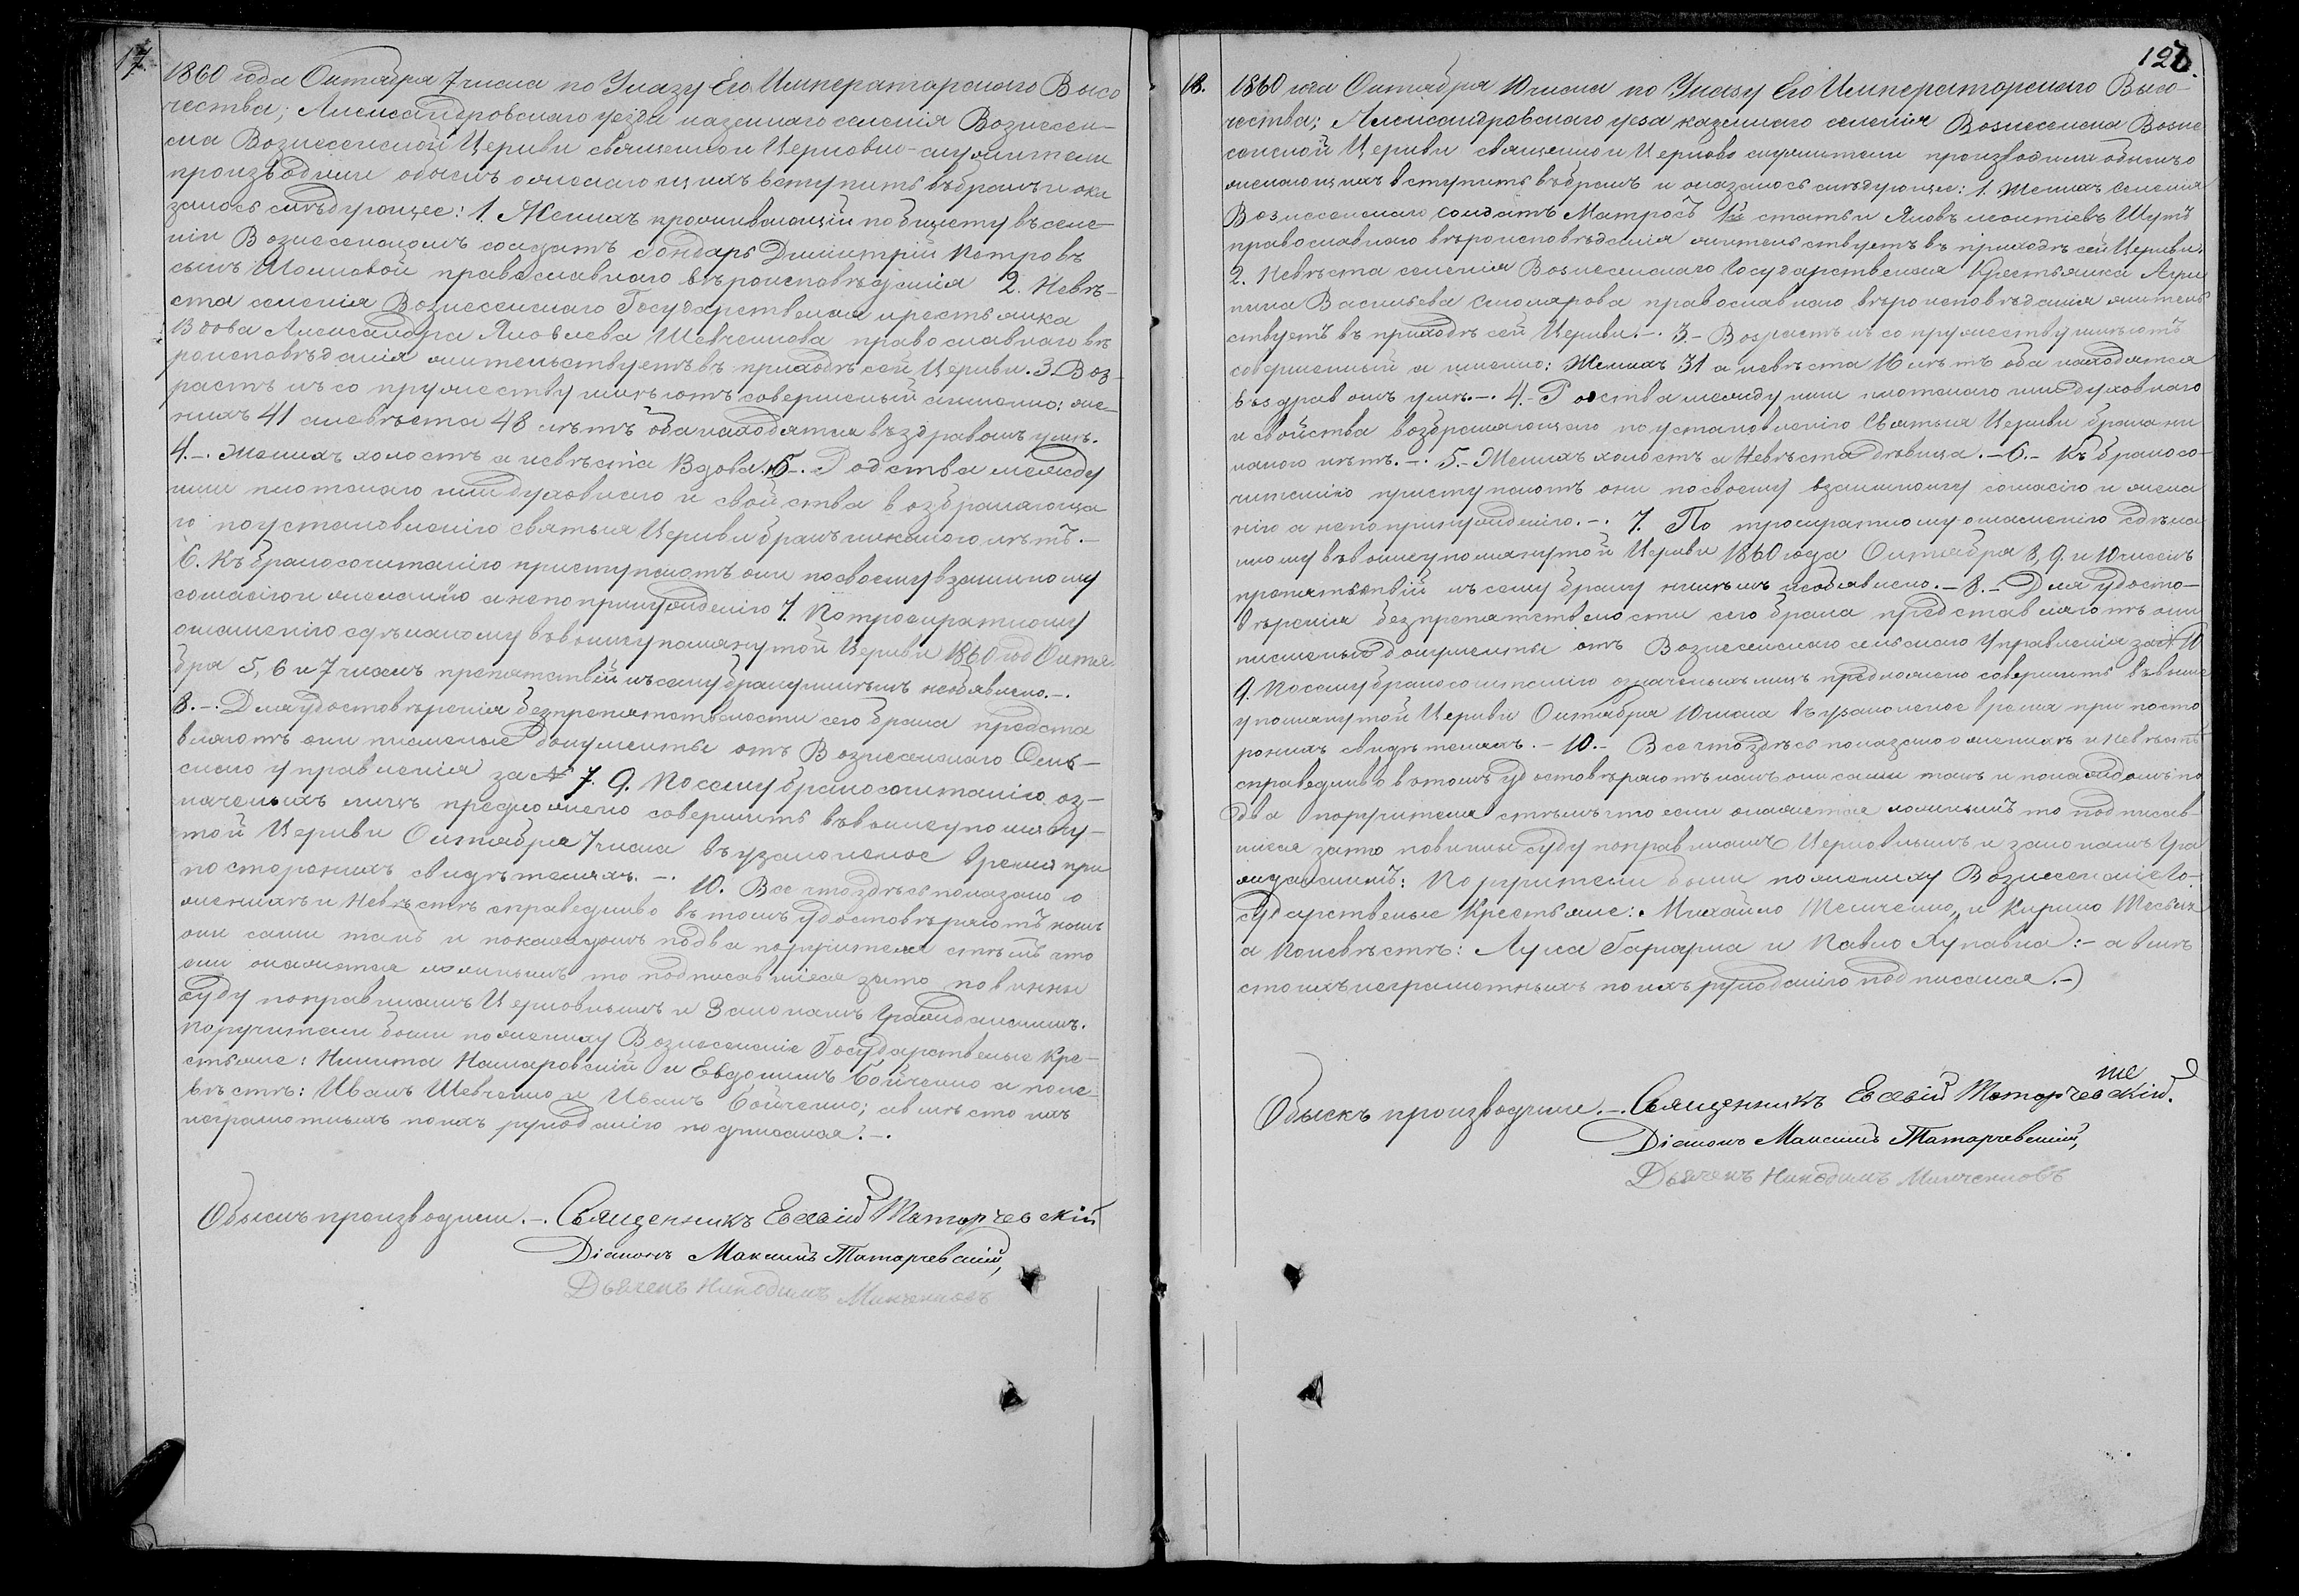 17.
1860 года Октября 7 числа по Указу Его Императорскаго Высо
чества; Александровскаго уезда казеннаго селенія Вознесен-
ска Вознесенской Церкви священно и Церковно-служители
производили обыскъ о желающихъ вступить въ бракъ и ока
залось слѣдующее: 1. Женихъ проживающій по билету въ селе-
ніи Вознесенскомъ солдатъ бондарь Димитрій Петровъ
сынъ православнаго вѣроисповѣданія 2. Невѣ-
ста селенія Вознесенскаго Государственая крестьянка
Вдова Александра Яковлева Шевченкова православнаго вѣ
роисповѣданія жительствуетъ въ приходѣ сей Церкви. 3. Воз-
растъ къ супружеству имѣютъ совершеный а именно: же-
нихъ 41 а невѣста 48 лѣтъ оба находятся въ здравомъ умѣ.
4.-. Женихъ холостъ а невѣста Вдова. 5.-. Родства между
ими плотскаго или духовнаго и свойства возбраняюща
го по установленію святыя Церкви бракъ никакого нѣтъ.-
6. Къ бракосочитанію приступаютъ они по своему взаимному
согласію и желанію а не по принуждению 7. По троекратному
оглашенію сдѣланому въ вышеупомянутой Церкви 1860 год Октя
бря 5, 6 и 7 числъ препятствій къ сему браку никѣмъ не обявлено.-.
8.-. Для удостовѣренія безпрепятствености сего брака предста
вляютъ они писменые документы отъ Вознесенскаго Сель-
скаго управленія за № 7. 9. По сему бракосочитанію оз-
наченыхъ лицъ предложено совершить въ вышеупомяну-
той Церкви Октября 7 числа въ узаконеное время при
постороннихъ свидѣтеляхъ. -. 10. Все что здѣсь показано о
женихѣ и Невѣстѣ справедливо въ томъ удостовѣряютъ какъ
они сами такъ и по каждомъ по два поручителя стѣмъ что
ели окажется ложнымъ то подписавшіеся за то повинны
суду по правиламъ Церковнымъ и Законамъ Гражданскимъ.
Поручители были по жениху Вознесенскіе Государственые Кре-
стьяне: Никита и Евдокимъ Бойченко а по не-
вѣстѣ: Иванъ Шевченко и Иванъ Бойченко; а вмѣсто ихъ
неграмотныхъ по ихъ рукоданію подписался.-.
Обыскъ производили.-. Священникъ Евсевій Татарчевскій
Діаконъ Максимъ Татарчевскій,
Дьячекъ Никодимъ
18.
1860 года Октября 10 числа по Указу Его Императорскаго Высо-
чества; Александровскаго уеза казеннаго селенія Вознесенска Возне
сенской Церкви священно и Церково служители производили обыскъ о
желающихъ вступить въ бракъ и оказалось слѣдующее: 1. Женихъ селенія
Вознесенскаго солдатъ Матросъ статьи Яковъ Леонтіевъ Шутъ
православнаго вѣроисповѣданія жительствуетъ въ приходѣ сей Церкви.
2. Невѣста селенія Вознесенскаго Государственая Крестьянка Агри
пина Васильева Столярова православнаго вѣроисповѣданія житель
ствуетъ въ приходѣ сей Церкви.-. 3.- Возрастъ къ супружеству имѣютъ
совершенный а именно: Женихъ 31 а невѣста 16 лѣтъ оба находятся
въ здравомъ умѣ.-. 4.- Родства между ими плотскаго или духовнаго
и свойства возбраняющаго по установлению Святыя Церкви брака ни
какого нѣтъ.-. 5.- Женихъ холостъ а Невѣста дѣвица.-6.- Къ бракосо-
читанію приступаютъ они по своему взаимному согласію и жела
нію а не по принуждению.-. 7. По троекратному оглашенію сдѣла
ному въ вышеупомянутой Церкви 1860 года Октября 8, 9. и 10 числъ
препятствій къ сему браку никѣмъ необявлено.-8.- Для удосто-
вѣренія безпрепятствености сего брака представляютъ они
писменые документы отъ Вознесенскаго сельскаго Управленія за № 10
9. По сему бракосочитанію означеныхъ лицъ предложено совершить въ выше
упомянутой Церкви Октября 10 числа въ узаконеное время при посто
роннихъ свидѣтеляхъ.-10.- Все что здѣсь показано о женихѣ и невѣстѣ
справедливо въ томъ удостовѣряютъ какъ они сами такъ и по каждомъ по
два поручителя стѣмъ что если окажется ложнымъ то подписав-
шіеся за то повинны суду по правиламъ Церковнымъ и законамъ Гра
жданскимъ: Поручители были по жениху Вознесенскіе Го-
сударственые Крестьяне: Михайло и Кирило
а по невѣстѣ: Лука и Павло :- а вмѣ
сто ихъ неграмотныхъ по ихъ рукоданію подписался.-)
Обыскъ производили.-. Священникъ Евсевій Татарчевскій.
Діаконъ Максимъ Татарчевскій,
Дьячекъ Никодимъ